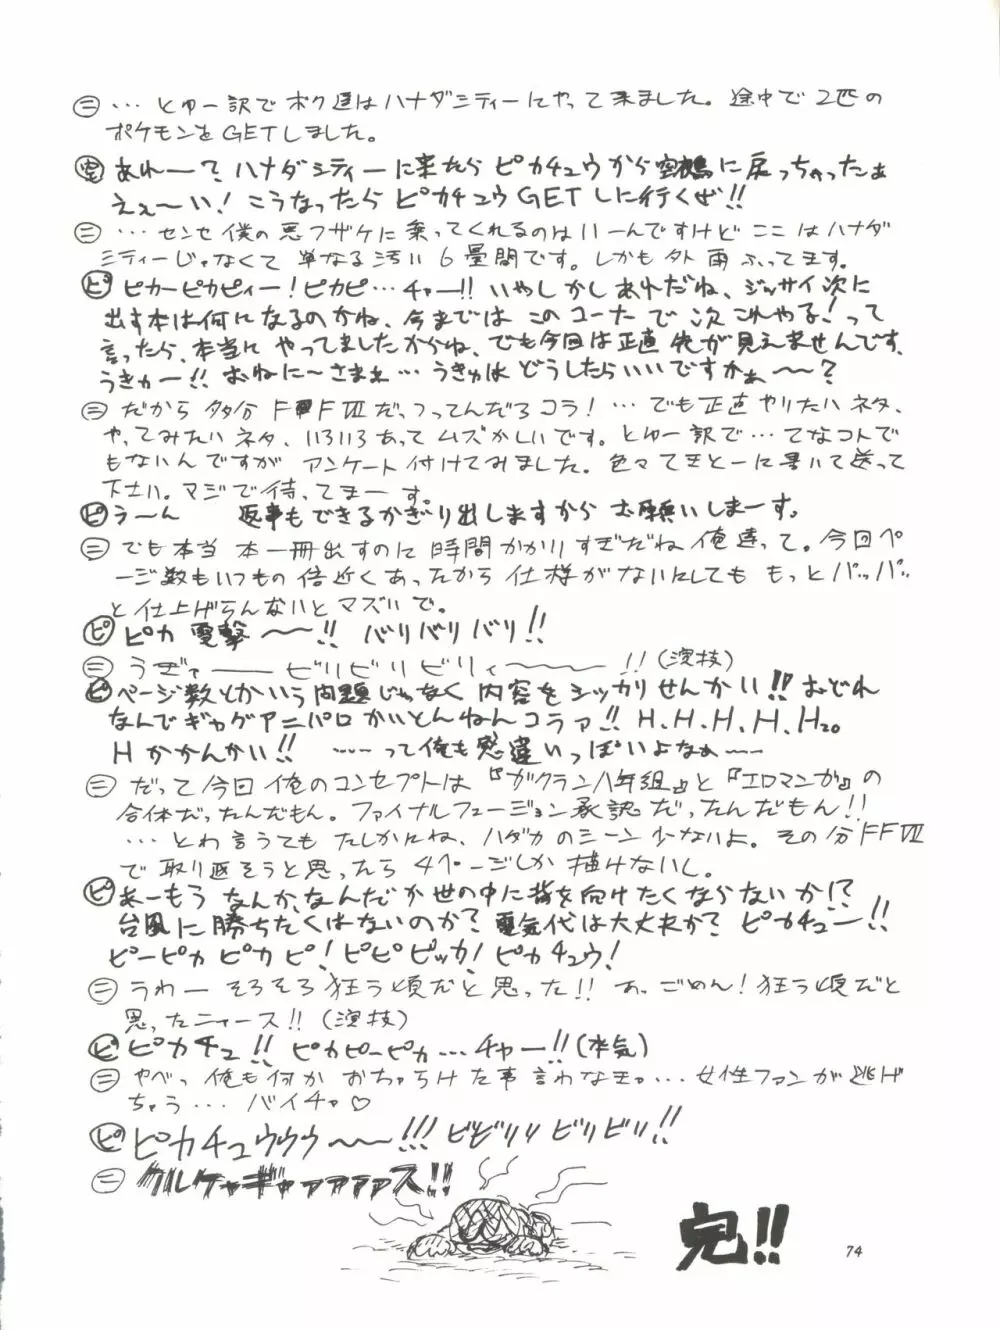 ㊁ … とゆー訳でボク達はハナダシティーにやって来ました。途中で2匹の
ポケモンをGETしました。
あれー？ハナダシティーに来たら ピカチュウから空鵺に戻っちゃったぁ
えぇ〜い！こうなったら ピカチュウGETしに行くぜ!!
㊁ … センセ僕の悪フザケに乗ってくれるのはいーんですけど ここはハナダ
シティーじゃなくて 単なる汚い6畳間です。しかも外 雨ふってます。
ピ ピカーピカピィー！ピカピ…チャー!! いやしかしあれだね、ジッサイ次に
出す本は何になるのかね、今まではこのコーナで次これやる！って
言ったら、本当にやってましたからね、でも今回は正直先が見えませんです、
うきカー!! おねに〜さまぁ… うきゅはどうしたらいいですかぁ〜〜？
㊁ だから多分FFⅦだっつってんだろコラ！…でも正直やりたいネタ、
やってみたいネタ、いろいろあってムズかしいです。とゆー訳で…てなコトで
もないんですが アンケート付けてみました。色々てきとーに書いて送って
下さい。マジで待ってまーす。
ピ うーん 返事もできるかぎり出しますから お願いしまーす。
㊁ でも本当 本一冊出すのに時間かかりすぎだね俺達って。今回ペ
ージ数もいつもの倍近くあったから仕様がないにしても もっとパッパッ
と仕上げらんないとマズいで。
ピ ピカ電撃〜〜!! バリバリバリ!!
㊁ うぎゃーー ビリビリビリィ〜〜〜!!（演技）
ピ ページ数とかいう問題じゃなく内容をシッカリせんかい!! おどれ
なんでギャグアニパロかいとんねんコラァ!! H.H.H.H.H₂₀
Hかかんかい!! ……って俺も感違いっぽいよなぁ〜〜
㊁ だって今回俺のコンセプトは『ガクラン八年組』と『エロマンガ』の
合体だったんだもん。ファイナルフュージョン承認だったんだもん!!
… とわ言うてもたしかにね、ハダカのシーン少ないよ。その分FFⅦ
で取り返そうと思ったら4ページしか描けないし。
ピ あーもう なんか、なんだか世の中に背を向けたくならないか!?
台風に勝ちたくはないのか？電気代は大丈夫か？ ピカチュー!!
ピーピカピカピ！ピピピッカ！ピカチュウ！
㊁ うわー そろそろ狂う頃だと思った!! あっごめん！狂う頃だと
思ったニャース!!（演技）
ピ ピカチュ!! ピカピーピカ…チャー!!（本気）
㊁ やべっ 俺も何かおちゃらけた事言わなきゃ…女性ファンが逃げ
ちゃう… バイチャ♡
ピ ピカチュウウウ〜〜!!! ビビリリビリビリ!!
㊁ グルケャギャァァァァス!!
完!!
74